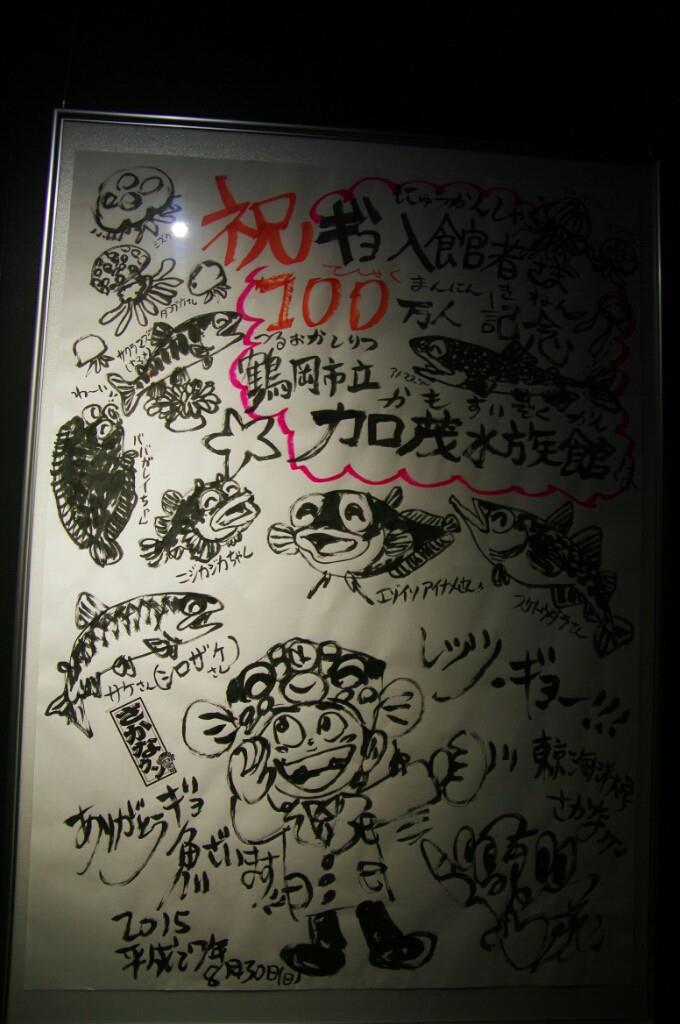 にゅうかんしゃ
祝 ギョ入館者さま
てんしゃく まんにん きねん
100万人記念
つるおかしりつ
鶴岡市立
かもすいぞくかん
加茂水族館
わ〜い
ババガレイちゃん
ニジカジカちゃん
エゾイソアイナメさん
スケトウダラさん
サケさん(シロザケさん)
さかなクン
レッツ・ギョー!!!
東京海洋大学
さかなクン
ありがとうギョ魚ざいます!!
2015
平成27年
8月30日(日)